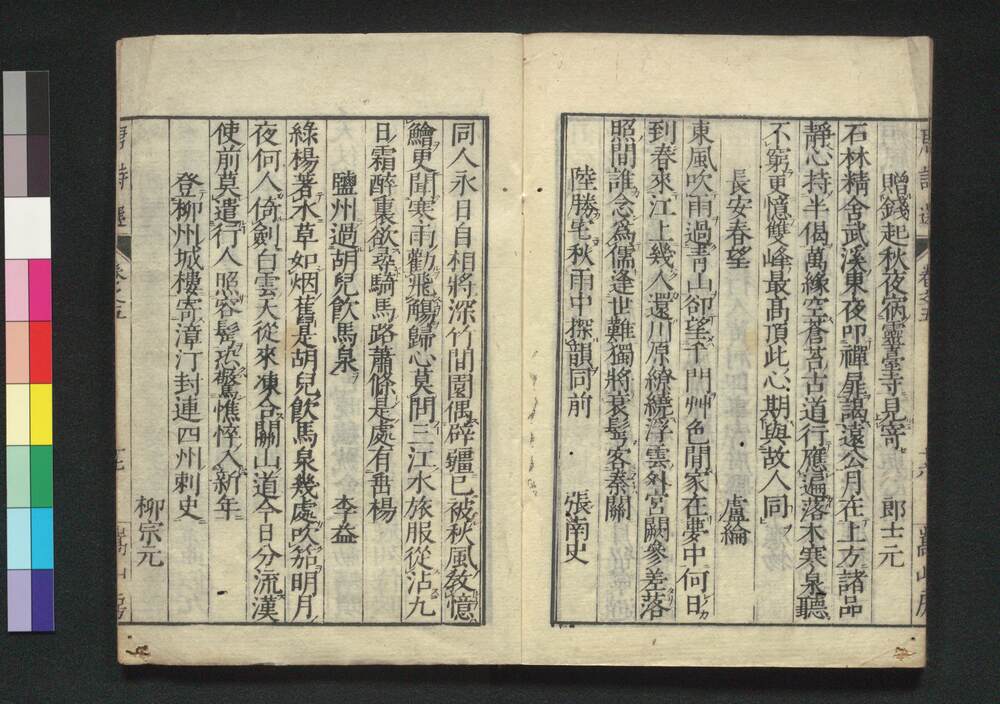 贈錢起秋夜宿靈臺寺見寄　郎士元
石林精舍武溪東夜叩禪扉謁遠公月在上方諸品
靜心持半偈萬緣空蒼苔古道行應遍落木寒泉聽
不窮更憶雙峰最高頂此心期與故人同
長安春望　盧綸
東風吹雨過青山卻望千門艸色閒家在夢中何日
到春來江上幾人還川原繚繞浮雲外宮闕參差落
照間誰念爲儒逢世難獨將衰髩客秦關
陸勝宅秋雨中探韻同前　張南史
同人永日自相將深竹間園偶辟疆已被秋風敎憶
鱠更聞寒雨勸飛觴歸心莫問三江水旅服從沾九
日霜醉裏欲尋騎馬路蕭條是處有垂楊
鹽州過胡兒飮馬泉　李益
綠楊著水草如烟舊是胡兒飮馬泉幾處吹笳明月
夜何人倚劍白雲天從來凍合關山道今日分流漢
使前莫遣行人照容髩恐驚憔悴入新年
登柳州城樓寄漳汀封連四州刺史
柳宗元
唐詩選　卷之五
嵩山房